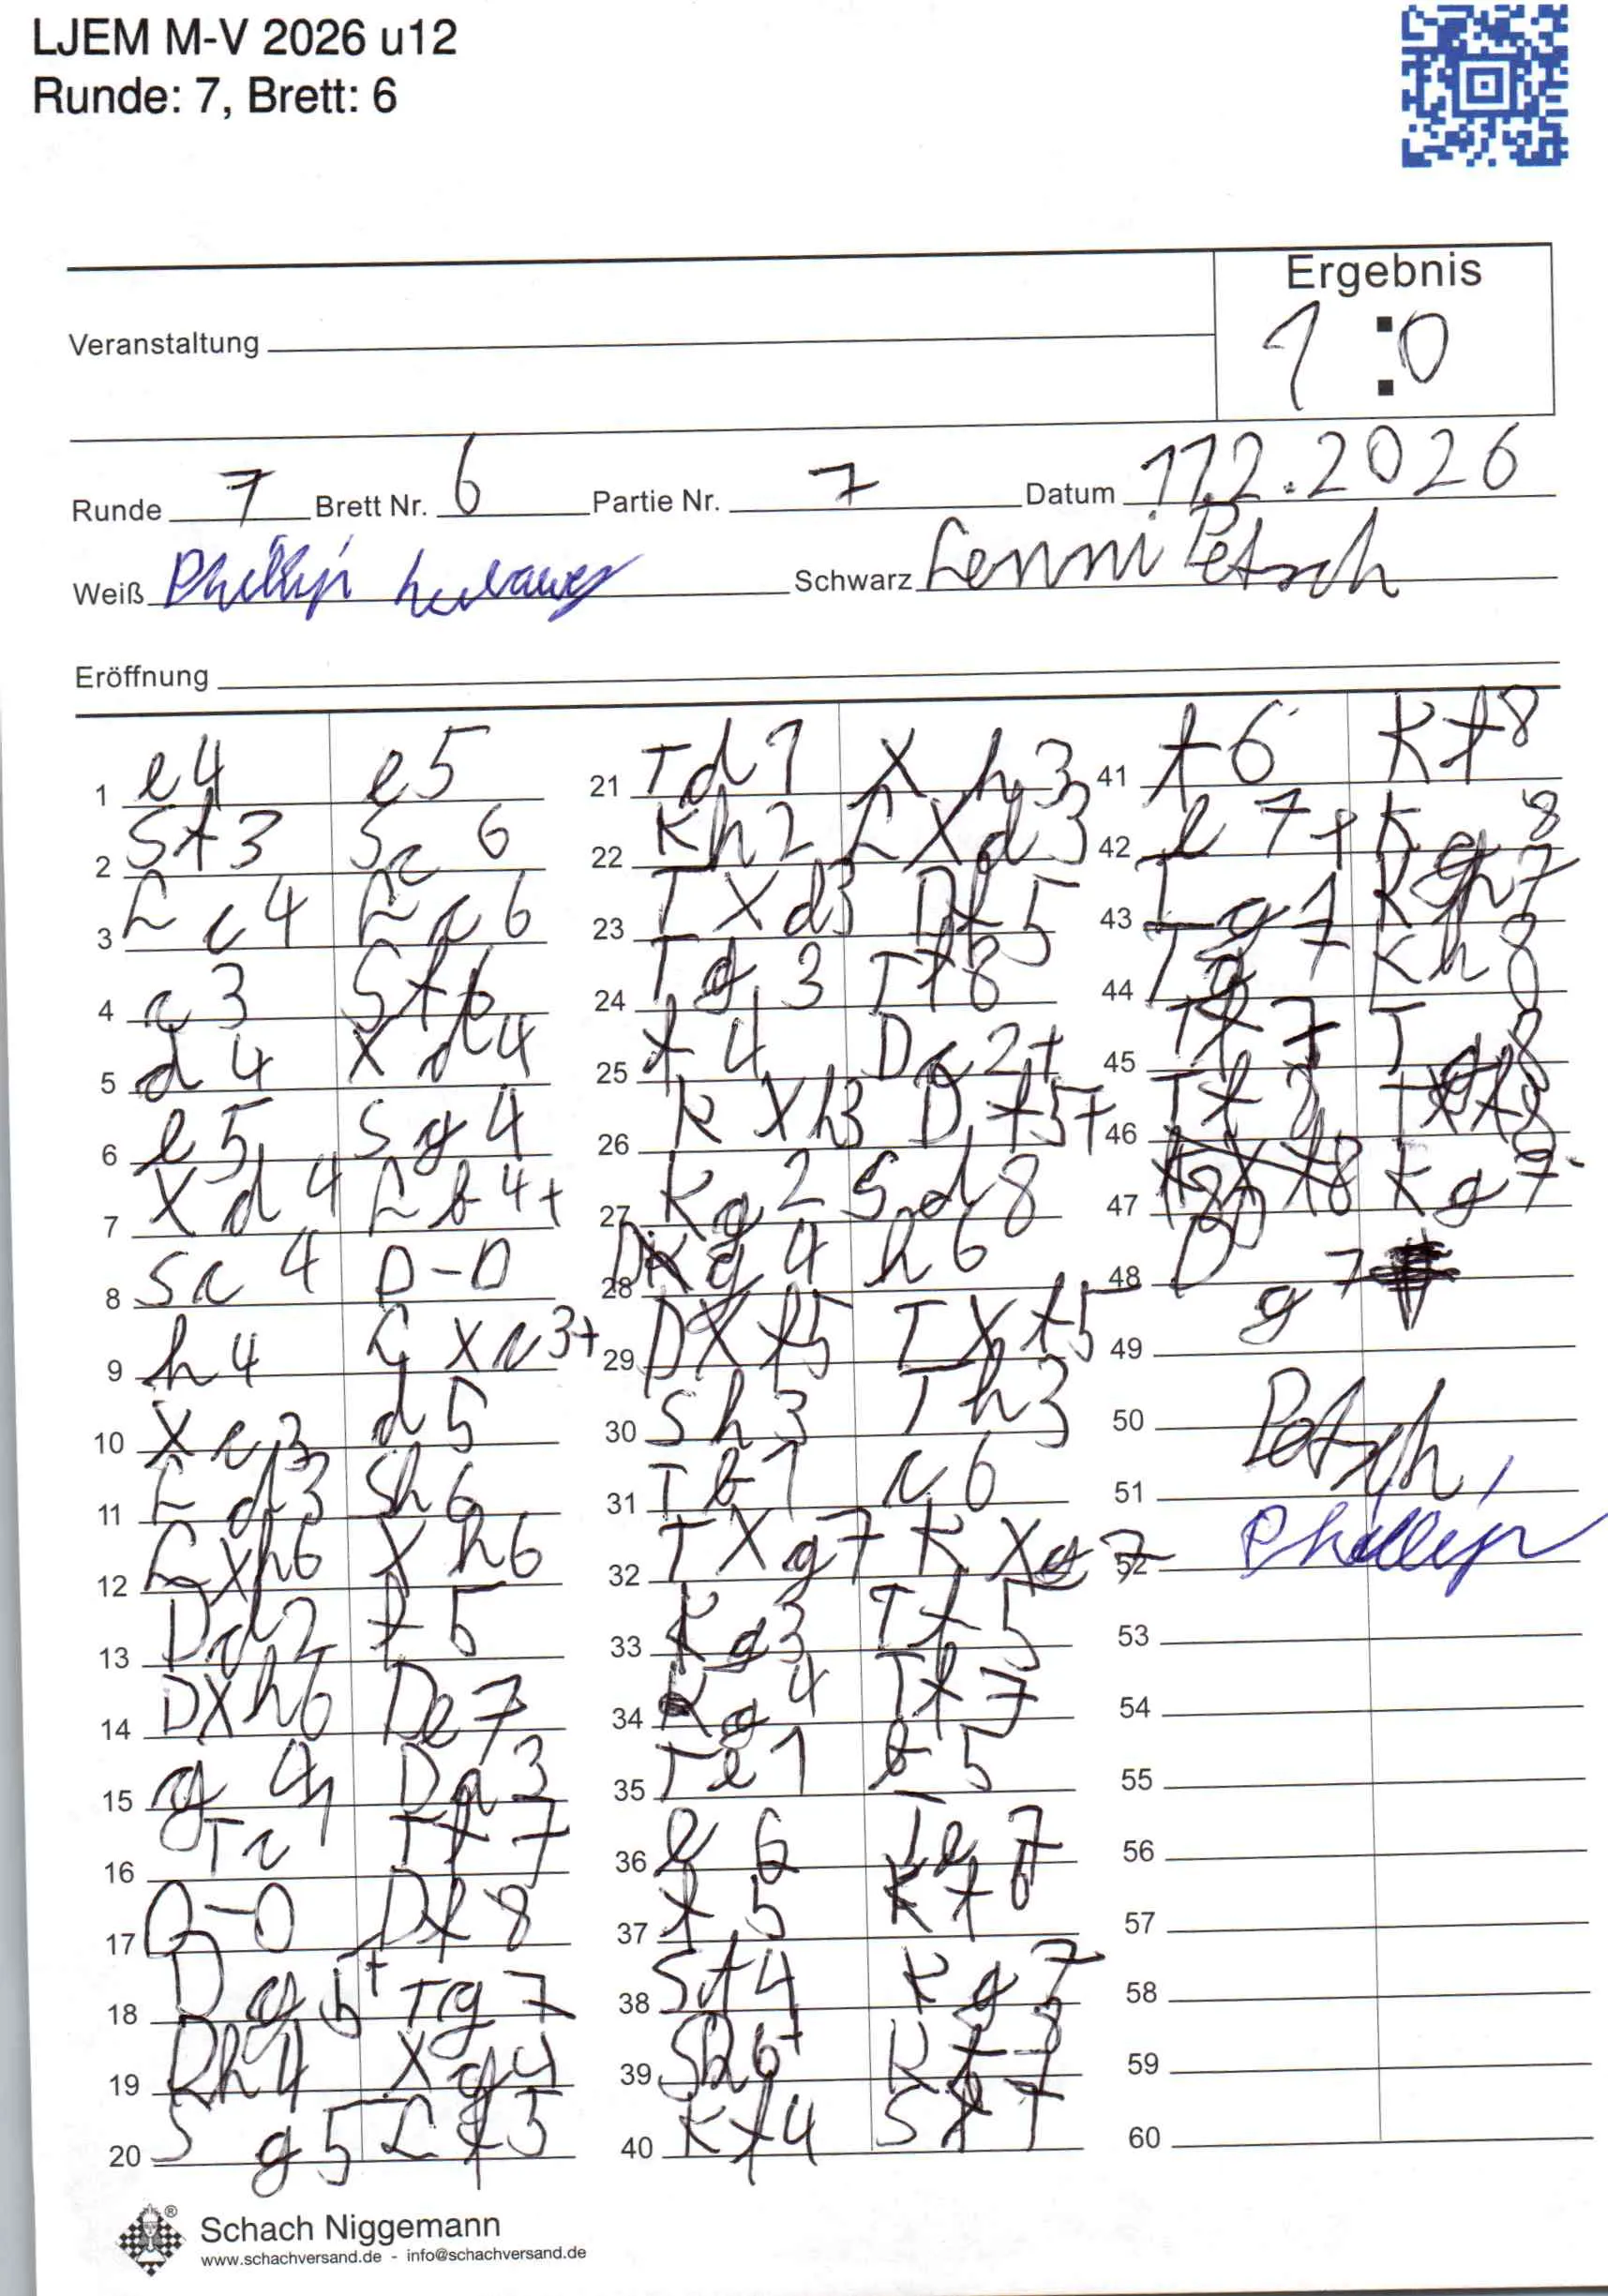 LJEM M-V 2026 u12
Runde: 7, Brett: 6
Ergebnis
1:0
Veranstaltung
Runde 7 Brett Nr. 6 Partie Nr. 7 Datum 11.2.2026
Weiß Phillip Schwarz Lenni Petsch
Eröffnung
1 e4 e5
2 Sf3 Sc6
3 Lc4 Lc6
4 c3 Sf6
5 d4 Xd4
6 e5 Sg4
7 Xd4 Lb4+
8 Sc4 0-0
9 h4 LXc3+
10 Xc3 d5
11 Ld3 Sh6
12 LXh6 Xh6
13 Dd2 f5
14 DXh6 De7
15 g4 Da3
16 Tc1 Tf7
17 0-0 Df8
18 Dg5+ Tg7
19 Dh4 Xg4
20 Sg5 Lf5
21 Td1 Xh3
22 Kh2 LXd3
23 TXd3 Df5
24 Tg3 Tf8
25 f4 Dc2+
26 KXh3 Df5+
27 Kg2 Sd8
28 Dg4 h6
29 DXf5 TXf5
30 Sh3 Th3
31 Tb1 c6
32 TXg7 KXg7
33 Kg3 Tf5
34 Kg4 Tf7
35 Te1 b5
36 e6 Te7
37 f5 Kf6
38 Sf4 Kg7
39 Sh6+ Kf8
40 Kf4 Sf7
41 f6 Kf8
42 e7+ Kg8
43 Tg1 Kh7
44 Tg7 Kh8
45 Tf7 Tg8
46 Tf8 TXf8
47 Kg7
48 Dg7
49
50 Petsch
51
52 Phillip
53
54
55
56
57
58
59
60
Schach Niggemann
www.schachversand.de - info@schachversand.de